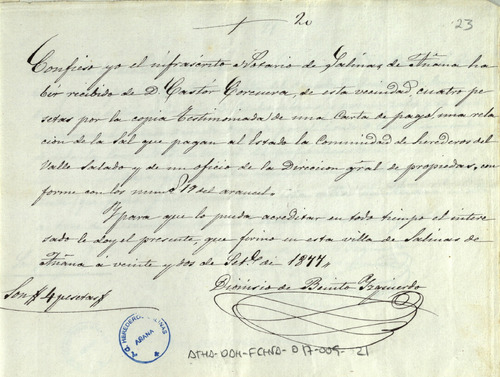 20
23
Confieso yo el infrascrito Notario de Salinas de Añana ha
bér recibido de D. Castór Gorcuera, de esta vecindad, cuatro pe
setas por la copia testimoniada de una Carta de pago, una rela
cion de la Sal que pagan al Estado la Comunidad de herederos del
Valle Salado y de un oficio de la Direccion gral de propiedas, con
forme con los num.s 19 del arancel.
Y para que lo pueda acreditar en todo tiempo el intere
sado le doy el presente, que firmo en esta villa de Salinas de
Añana á veinte y dos de Set.e de 1877,,
Son ff 4 pesetas ff
Dionisio de Benito Izquierdo
HEREDEROS
SALINAS
AÑANA
ATHA-DAH-FCHSA-017-009-21